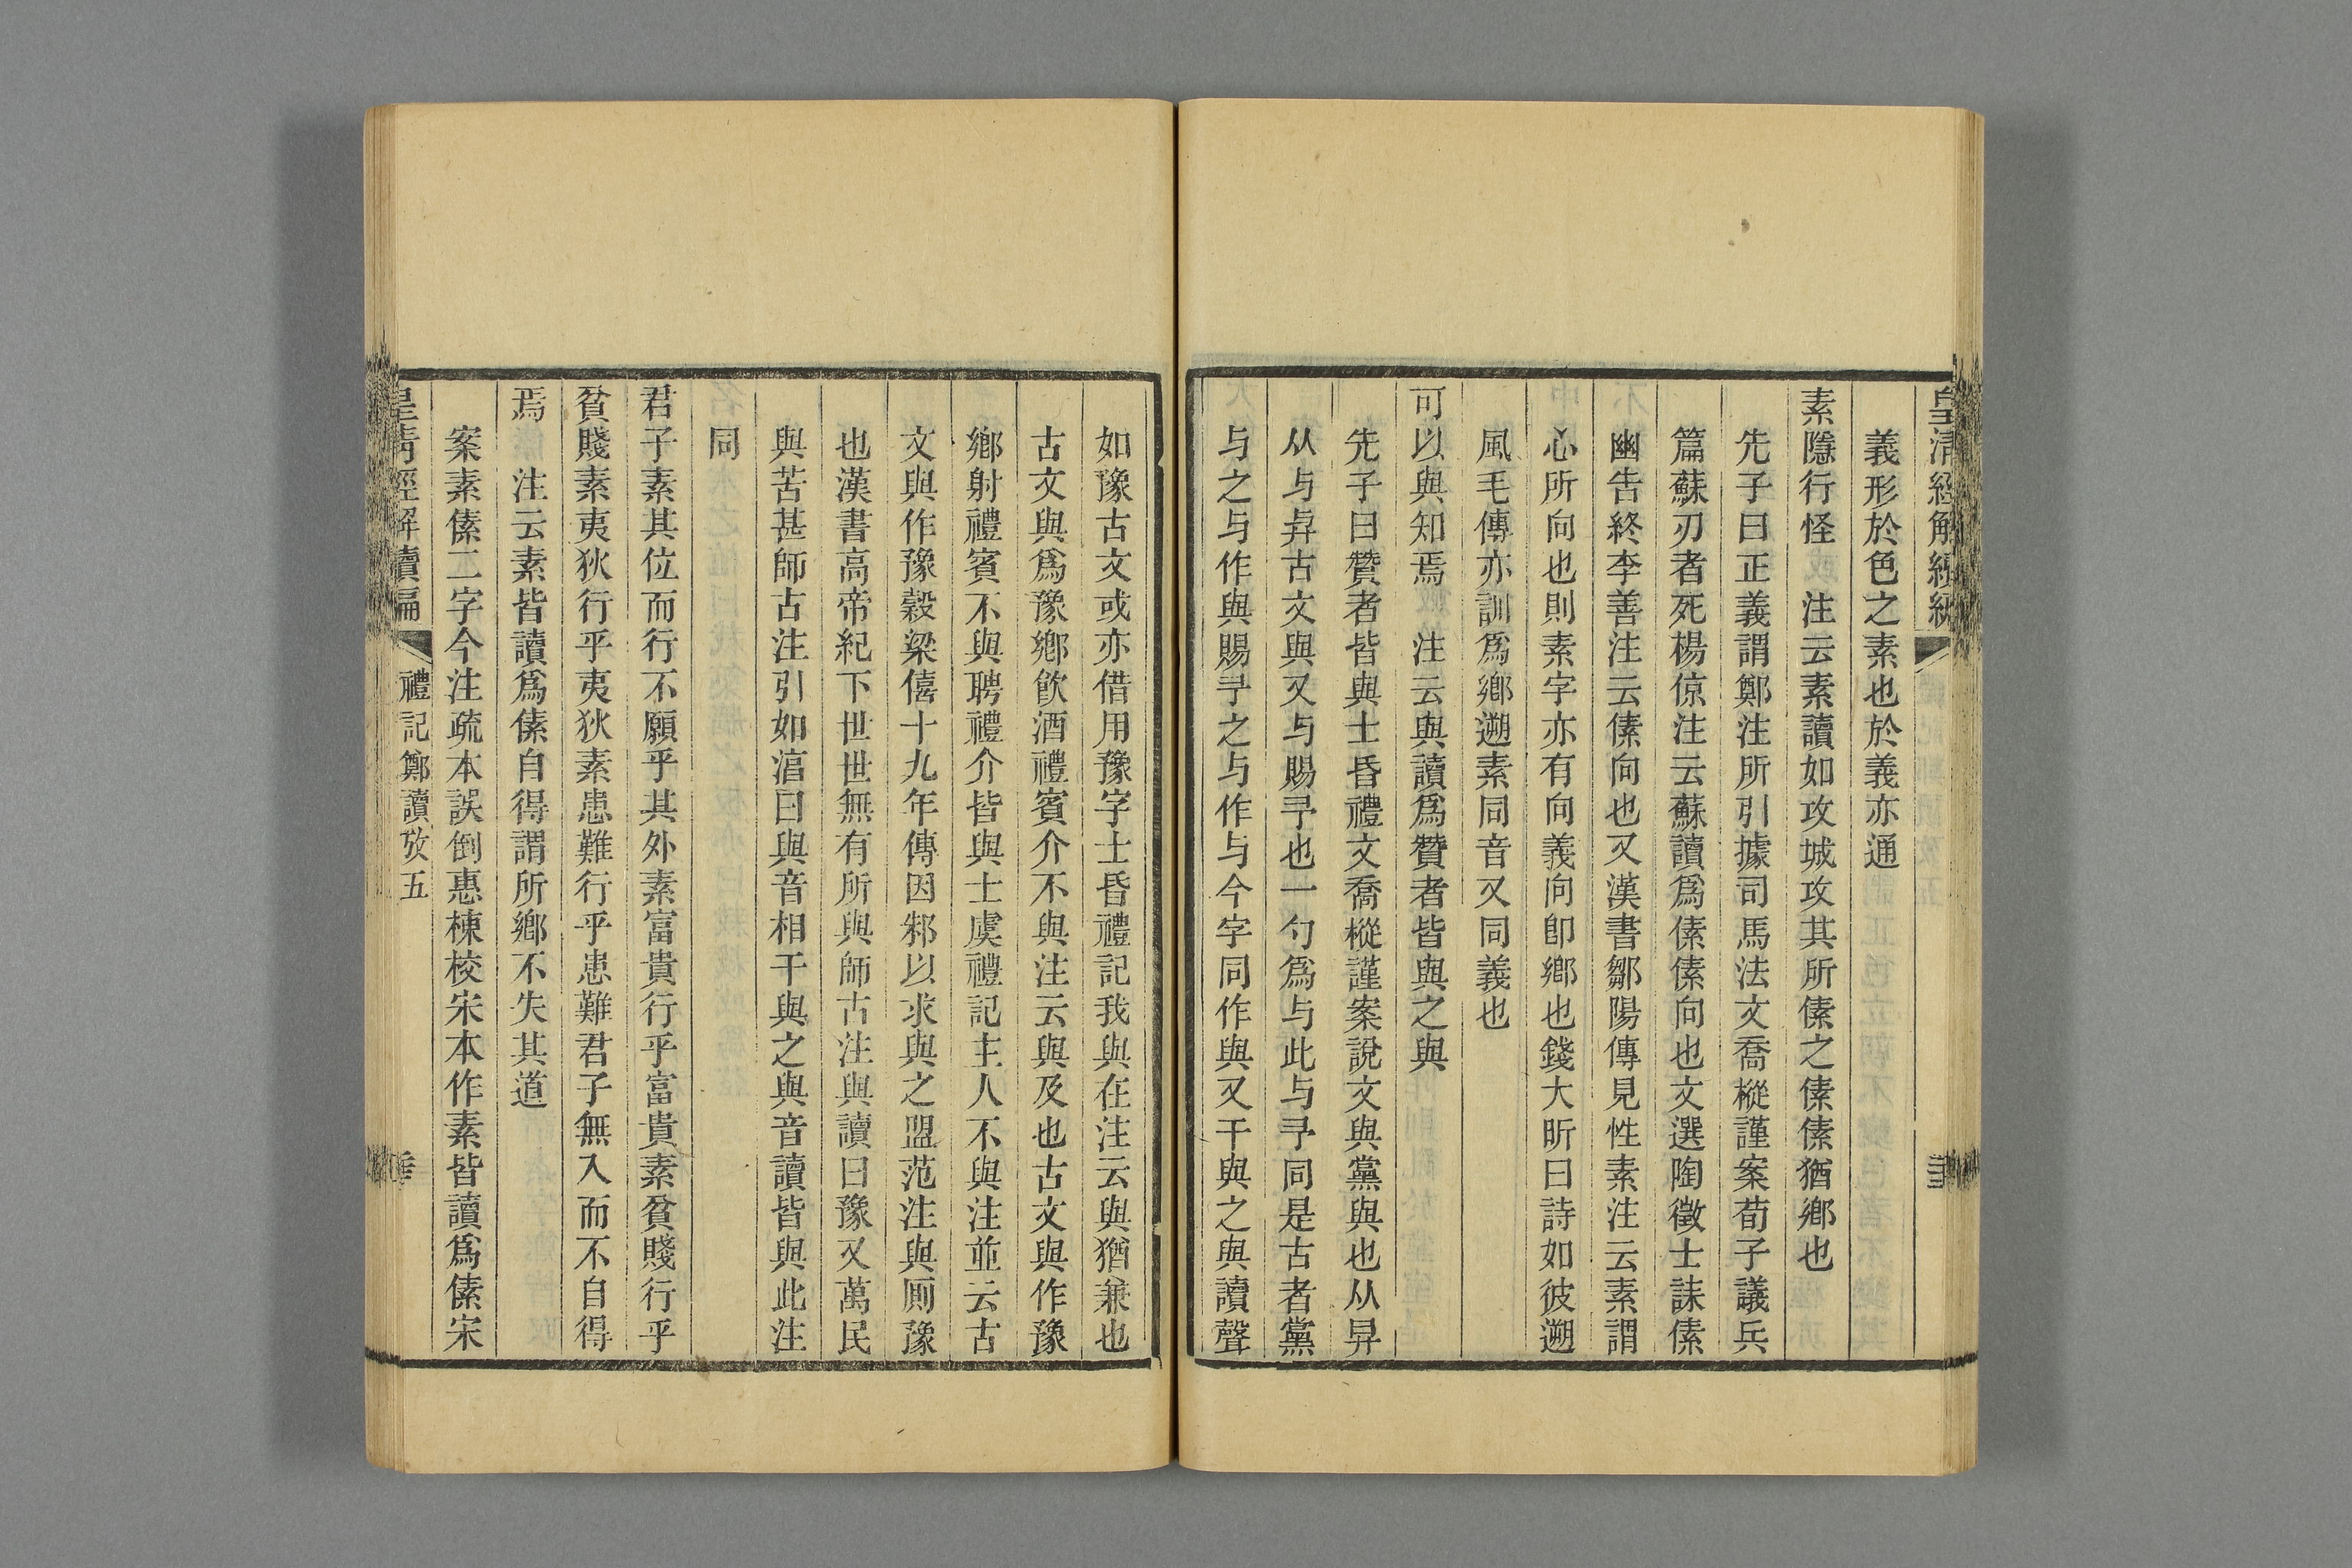 皇清經解續編
義形於色之素也於義亦通
素隱行怪　注云素讀如攻城攻其所傃之傃傃猶鄉也
先子曰正義謂鄭注所引據司馬法文喬樅謹案荀子議兵
篇蘇刃者死楊倞注云蘇讀爲傃傃向也文選陶徵士誄傃
幽告終李善注云傃向也又漢書鄒陽傳見性素注云素謂
心所向也則素字亦有向義向卽鄉也錢大昕曰詩如彼遡
風毛傳亦訓爲鄉遡素同音又同義也
可以與知焉　注云與讀爲贊者皆與之與
先子曰贊者皆與士昏禮文喬樅謹案說文與黨與也从舁
从与舁古文與又与賜予也一勺爲与此与予同是古者黨
与之与作與賜予之与作与今字同作與又干與之與讀聲
如豫古文或亦借用豫字士昏禮記我與在注云與猶兼也
古文與爲豫鄉飮酒禮賓介不與注云與及也古文與作豫
鄉射禮賓不與聘禮介皆與士虞禮記主人不與注並云古
文與作豫穀梁僖十九年傳因邾以求與之盟范注與厠豫
也漢書高帝紀下世世無有所與師古注與讀曰豫又萬民
與苦甚師古注引如淳曰與音相干與之與音讀皆與此注
同
君子素其位而行不願乎其外素富貴行乎富貴素貧賤行乎
貧賤素夷狄行乎夷狄素患難行乎患難君子無入而不自得
焉　注云素皆讀爲傃自得謂所鄉不失其道
案素傃二字今注疏本誤倒惠棟校宋本作素皆讀爲傃宋
皇清經解續編　禮記鄭讀攷五